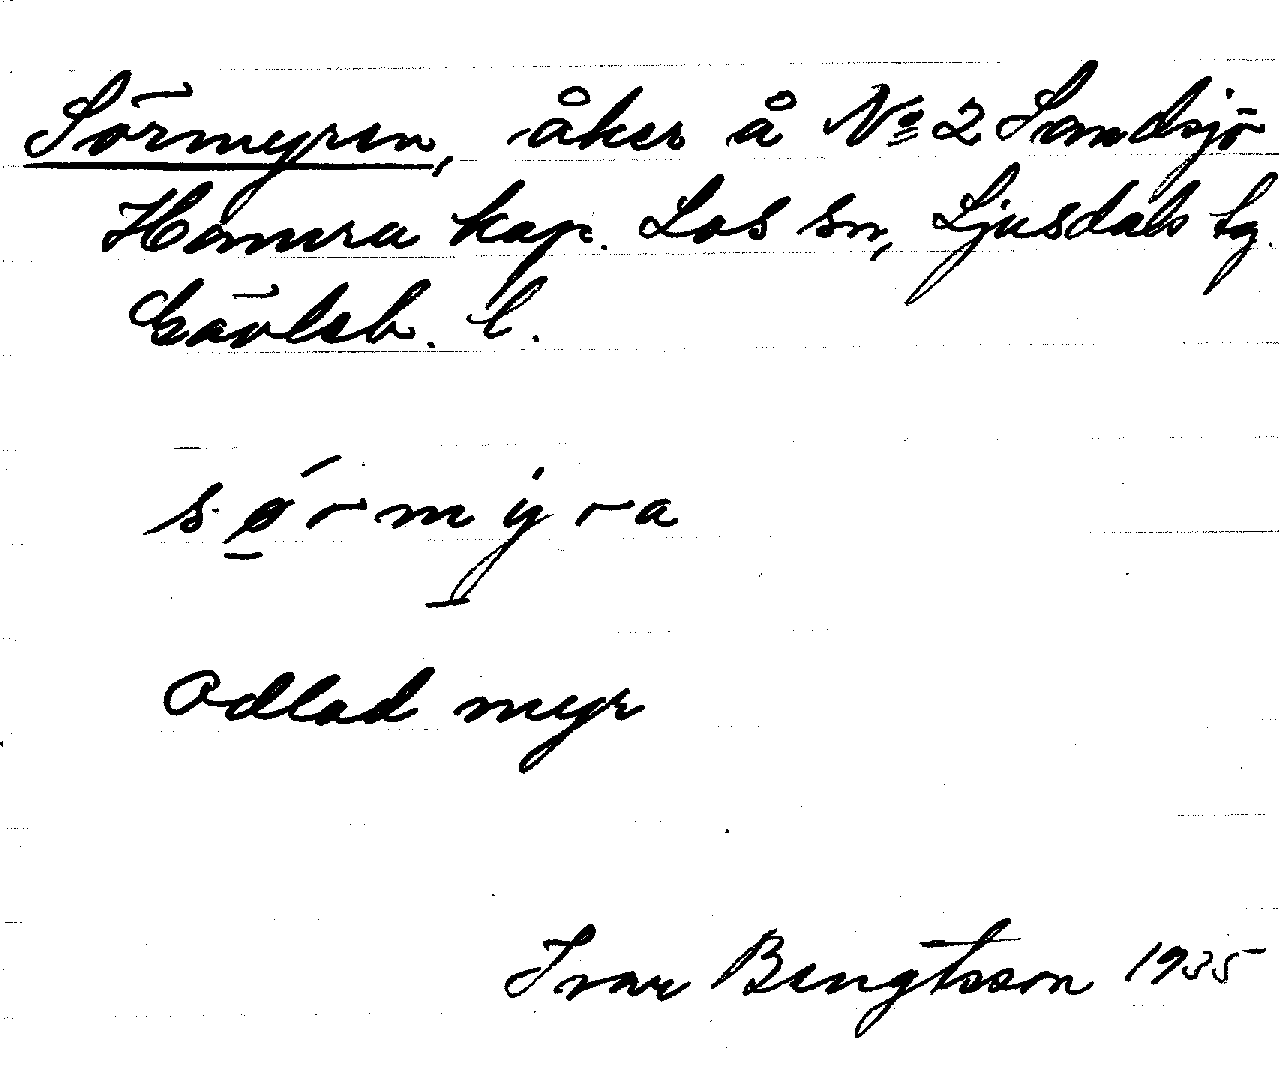 Sörmyren, åker å No 2 Sandsjö
Hamra kap. Los sn, Ljusdals tg.
Gävleb. l.
sǿ̱rmẏ̱ra
Odlad myr
Ivar Bengtsson 1935